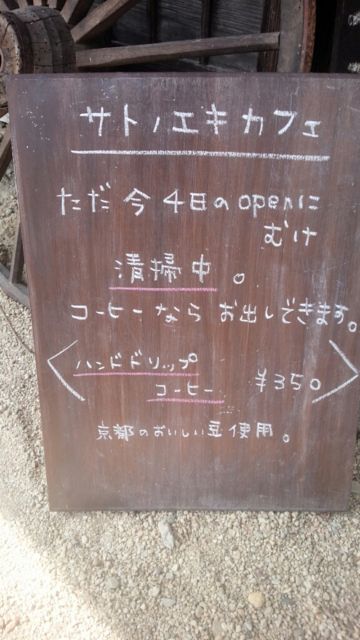 サトノエキカフェ
ただ今4日のopenに
むけ
清掃中。
コーヒーなら お出しできます。
ハンドドリップ
コーヒー ¥350
京都のおいしい豆使用。